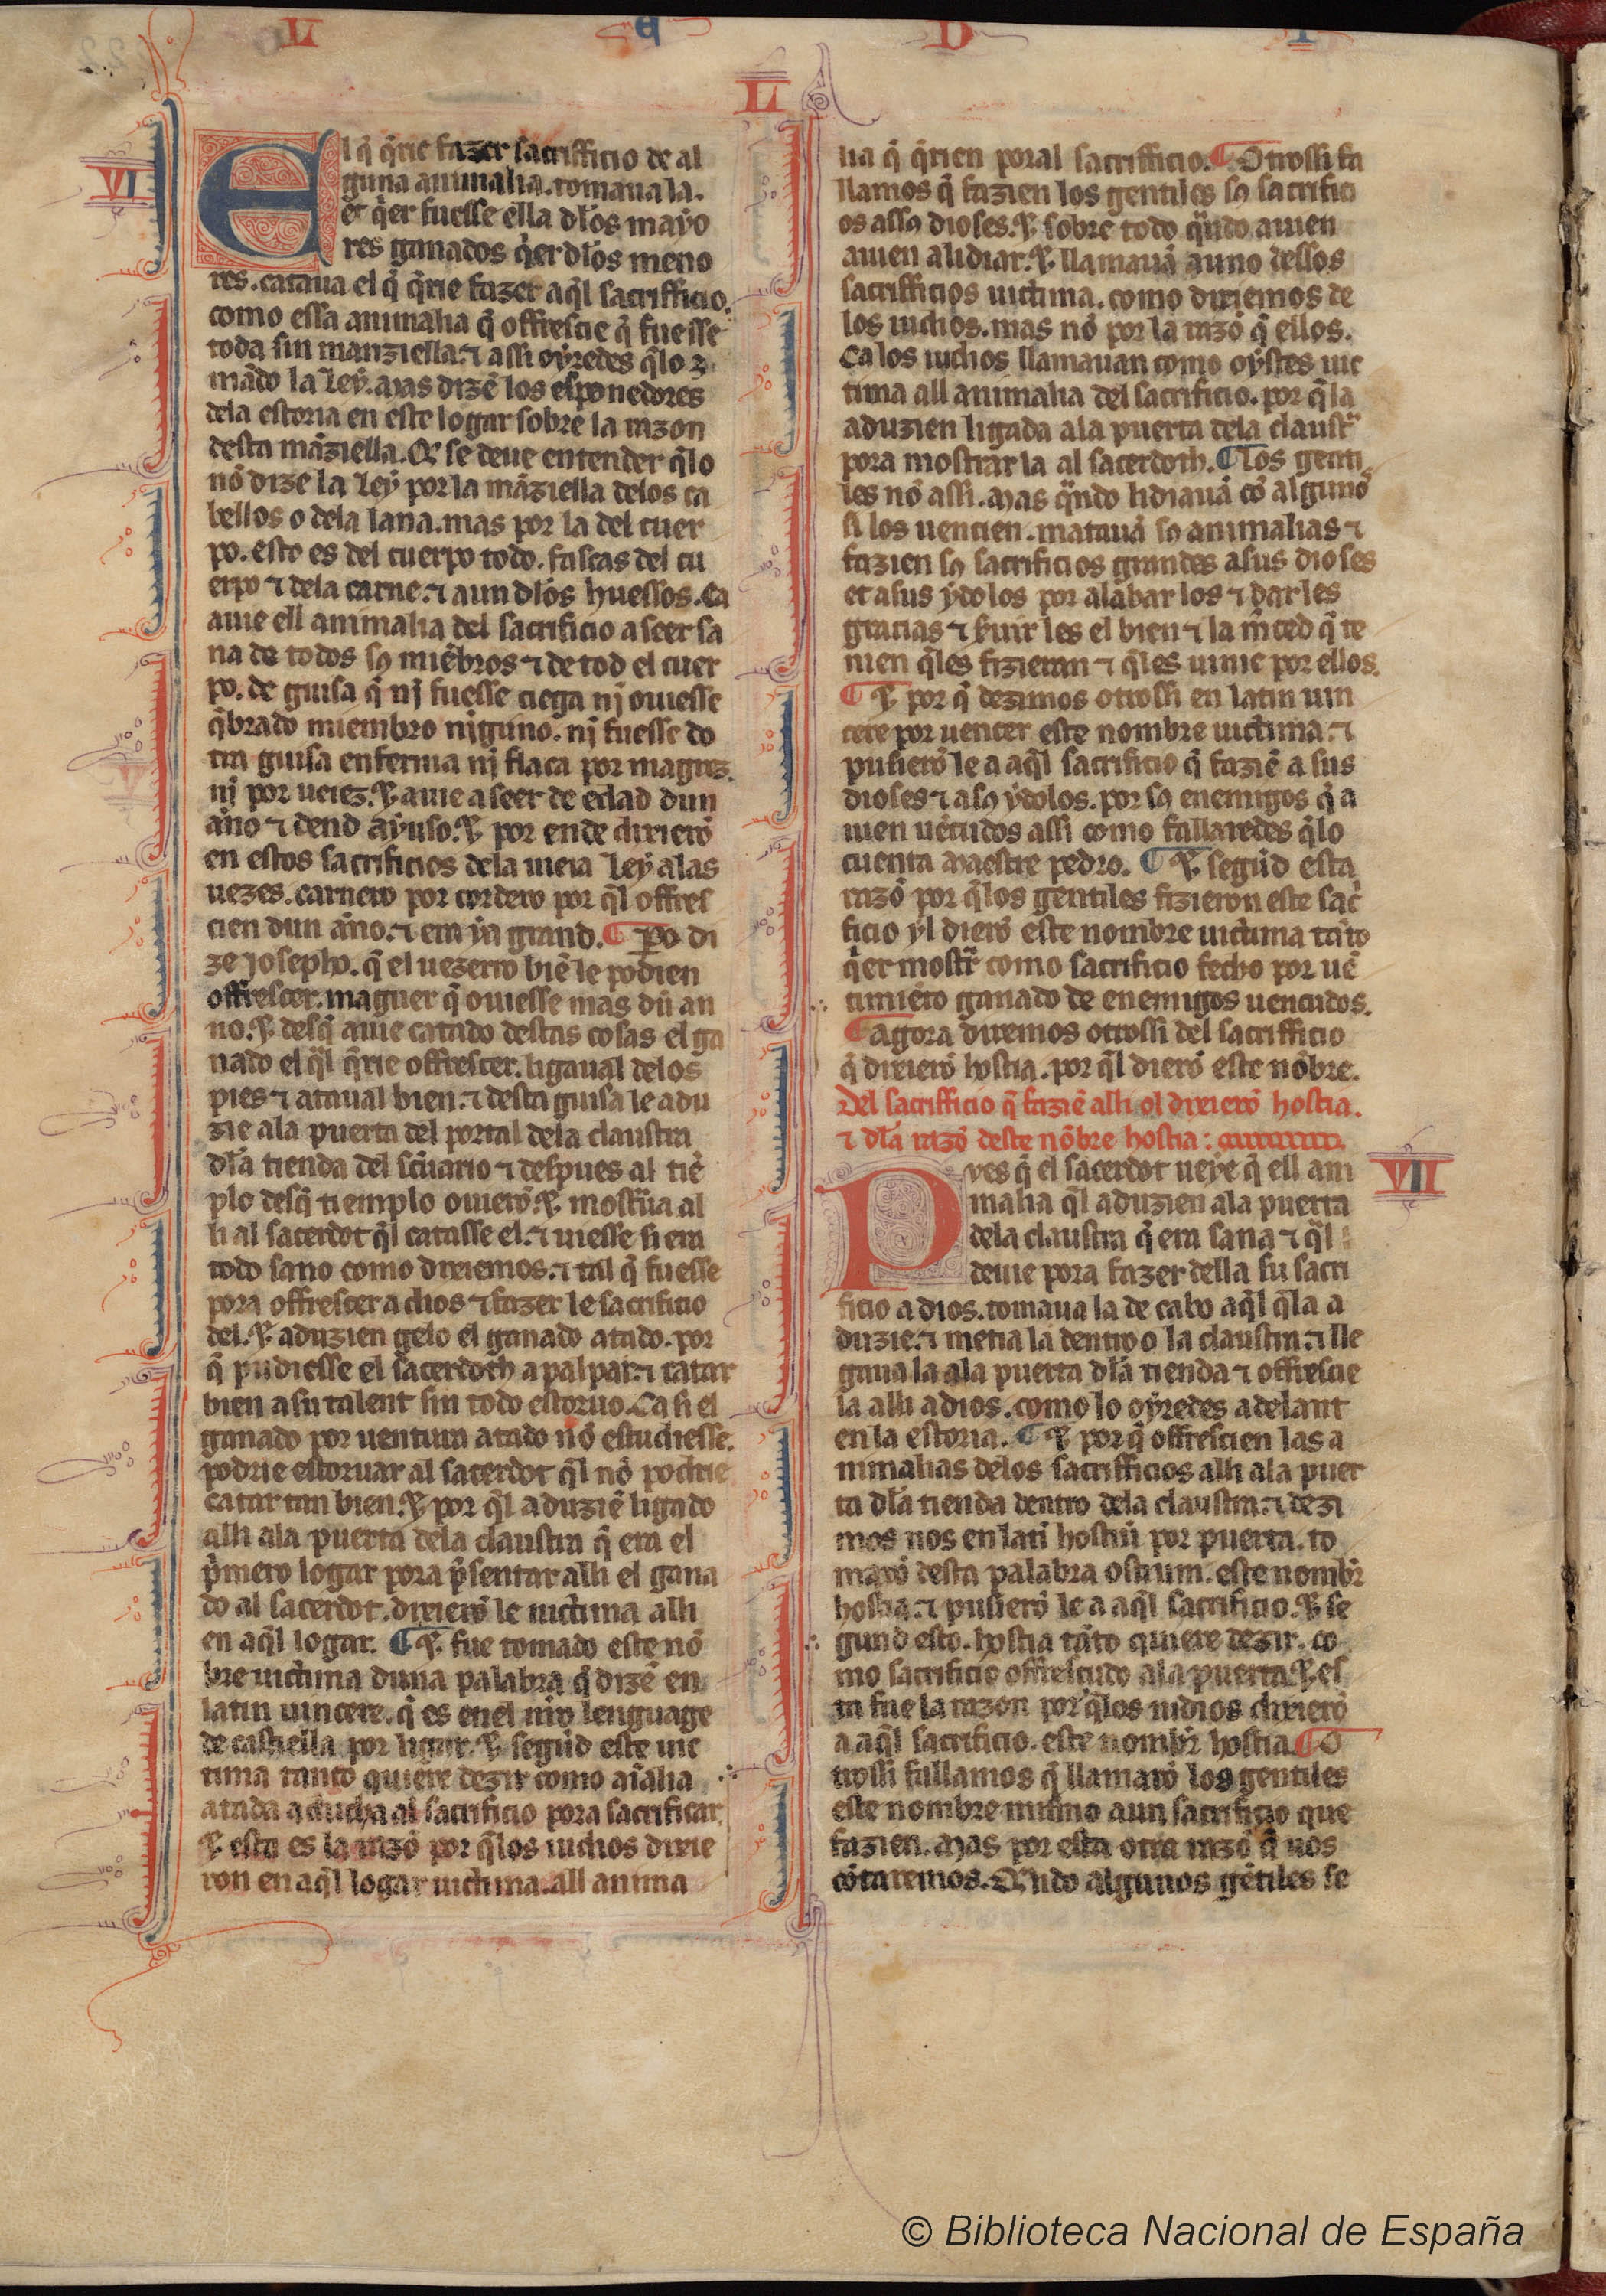 L E D I
L
VI
El q̃ q̃rie fazer sacrifficio de al
guna animalia. tomaua la.
et q̃er fuesse ella dlos mayo
res ganados q̃er dlos meno
res. cataua el q̃ q̃rie fazer aq̃l sacrifficio.
como essa animalia q̃ offrescie q̃ fuesse
toda sin manziella. ⁊ assi oyredes q̃lo
mãdo la Ley. Mas dizẽ los esponedores
dela estoria en este logar sobre la razon
desta mãziella. Q̃ se deue entender q̃lo
nõ dize la Ley por la mãziella delos ca
bellos o dela lana. mas por la del cuer
po. esto es del cuerpo todo. fascas del cu
erpo ⁊ dela carne. ⁊ aun dlos huessos. Ca
auie ell animalia del sacrificio a seer sa
na de todos sꝯ miẽbros ⁊ de tod el cuer
po. de guisa q̃ nj fuesse ciega nj ouiesse
q̃brado miembro njguno. nj fuesse do
tra guisa enferma nj flaca por magrez.
nj por ueiez. ⁊ auie a seer de edad dun
anno ⁊ dend ayuso. ⁊ por ende dixierõ
en estos sacrificios dela uieia Ley alas
uezes. carnero por cordero por q̃l offres
cien dun anno. ⁊ era ya grand. ¶ Po di
ze Josepho. q̃ el uezerro biẽ le podien
offrescer. maguer q̃ ouiesse mas dũ an
no. ⁊ desq̃ auie catado destas cosas el ga
nado el q̃l q̃rie offrescer. ligaual delos
pies ⁊ ataual bien. ⁊ desta guisa le adu
zie ala puerta del portal dela claustra
dla tienda del sc̃uario ⁊ despues al tẽ
plo desq̃ tiemplo ouierõ. ⁊ mostraua al
li al sacerdot q̃l catasse el. ⁊ uiesse si era
todo sano como dixiemos. ⁊ tal q̃ fuesse
pora offrescer a dios ⁊ fazer le sacrificio
del. ⁊ aduzien gelo el ganado atado. por
q̃ pudiesse el sacerdoth apalpar. ⁊ catar
bien a su talent sin todo estoruo. Ca si el
ganado por uentura atado nõ estudiesse.
podrie estoruar al sacerdot q̃l nõ podrie
catar tan bien. ⁊ por q̃l aduziẽ ligado
alli ala puerta dela claustra q̃ era el
p̃mero logar pora p̃sentar alli el gana
do al sacerdot. dixierõ le uictima alli
en aq̃l logar. ¶ ⁊ fue tomado este nõ
bre uictima duna palabra q̃ dizẽ en
latin uincere. q̃ es enel nr̃o lenguage
de castiella por ligar. ⁊ segũd este uic
tima tanto quiere dezir como aĩalia
atada aducha al sacrificio pora sacrificar.
⁊ esta es la razõ por q̃los iudios dixie
ron en aq̃l logar uictima. all anima
lia q̃ q̃rien poral sacrifficio. ¶ Otrossi fa
llamos q̃ fazien los gentiles sꝯ sacrifici
os assꝯ dioses. ⁊ sobre todo q̃ndo auien
auien a lidiar. ⁊ llamauã auno dellos
sacrifficios uictima. como dixiemos de
los iudios. mas nõ por la razõ q̃ ellos.
Ca los iudios llamauan como oystes uic
tima all animalia del sacrificio. por q̃la
aduzien ligada ala puerta dela claustr̃
pora mostrar la al sacerdoth. ¶ Los genti
les nõ assi. Mas q̃ndo lidiauã cõ alguno
si los uencien. matauã sꝯ animalias ⁊
fazien sꝯ sacrificios grandes asus dioses
et asus ydolos por alabar los ⁊ dar les
gracias ⁊ s̃uir les el bien ⁊ la m̃ced q̃ te
nien q̃les fizieran ⁊ q̃les uinie por ellos.
¶ ⁊ por q̃ dezimos otrossi en latin uin
cere por uencer este nombre uictima. ⁊
pusierõ le a aq̃l sacrificio q̃ faziẽ a sus
dioses ⁊ a sꝯ ydolos. por sꝯ enemigos q̃ a
uien uẽcudos assi como fallaredes q̃lo
cuenta Maestre pedro. ¶ ⁊ segũd esta
razõ por q̃los gentiles fizieron este sac̃
ficio yl dierõ este nombre uictima tãto
q̃er mostr̃ como sacrificio fecho por uẽ
cimiẽto ganado de enemigos uencudos.
¶ Agora diremos otrossi del sacrifficio
q̃ dixierõ hostia. por q̃l dierõ este nõbre.
Del sacrifficio q̃ faziẽ alli ol dixierõ hostia.
⁊ dla razõ deste nõbre hostia:
VII
Pves q̃ el sacerdot ueye q̃ ell ani
malia q̃l aduzien ala puerta
dela claustra q̃ era sana ⁊ q̃l
deuie pora fazer della su sacri
ficio a dios. tomaua la de cabo aq̃l q̃la a
duzie. ⁊ metia la dentro o la claustra. ⁊ lle
gaua la ala puerta dla tienda ⁊ offrescie
la alli a dios. como lo oyredes adelant
en la estoria. ¶ ⁊ por q̃ offrescien las a
nimalias delos sacrifficios alli ala puer
ta dla tienda dentro dela claustra. ⁊ dezi
mos nos en latĩ hostiũ por puerta. to
marõ desta palabra ostium. este nombr̃
hostia. ⁊ pusierõ le a aq̃l sacrificio. ⁊ se
gund esto. hostia tãto quiere dezir. co
mo sacrificio offrescudo ala puerta. ⁊ es
ta fue la razon por q̃los iudios dixierõ
a aq̃l sacrificio. este nombr̃ hostia. ¶ O
trossi fallamos q̃ llamarõ los gentiles
este nombre mismo aun sacrificio que
fazien. Mas por esta otra razõ q̃ uos
cõtaremos. Q̃ndo algunos gẽtiles se
© Biblioteca Nacional de España